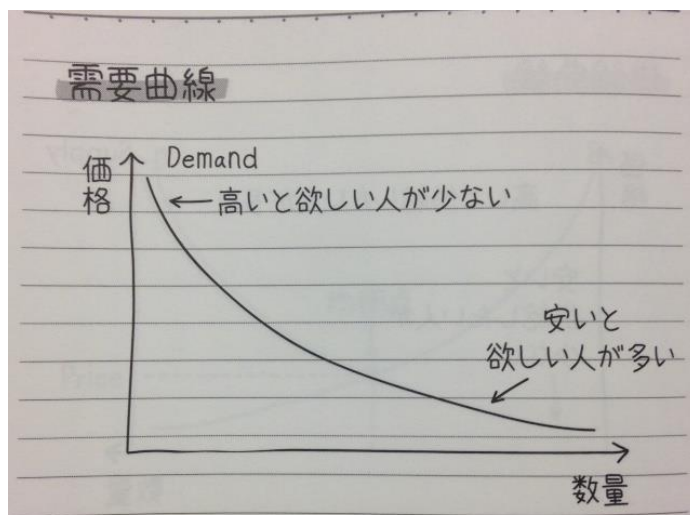 需要曲線
価格
Demand
高いと欲しい人が少ない
安いと
欲しい人が多い
数量